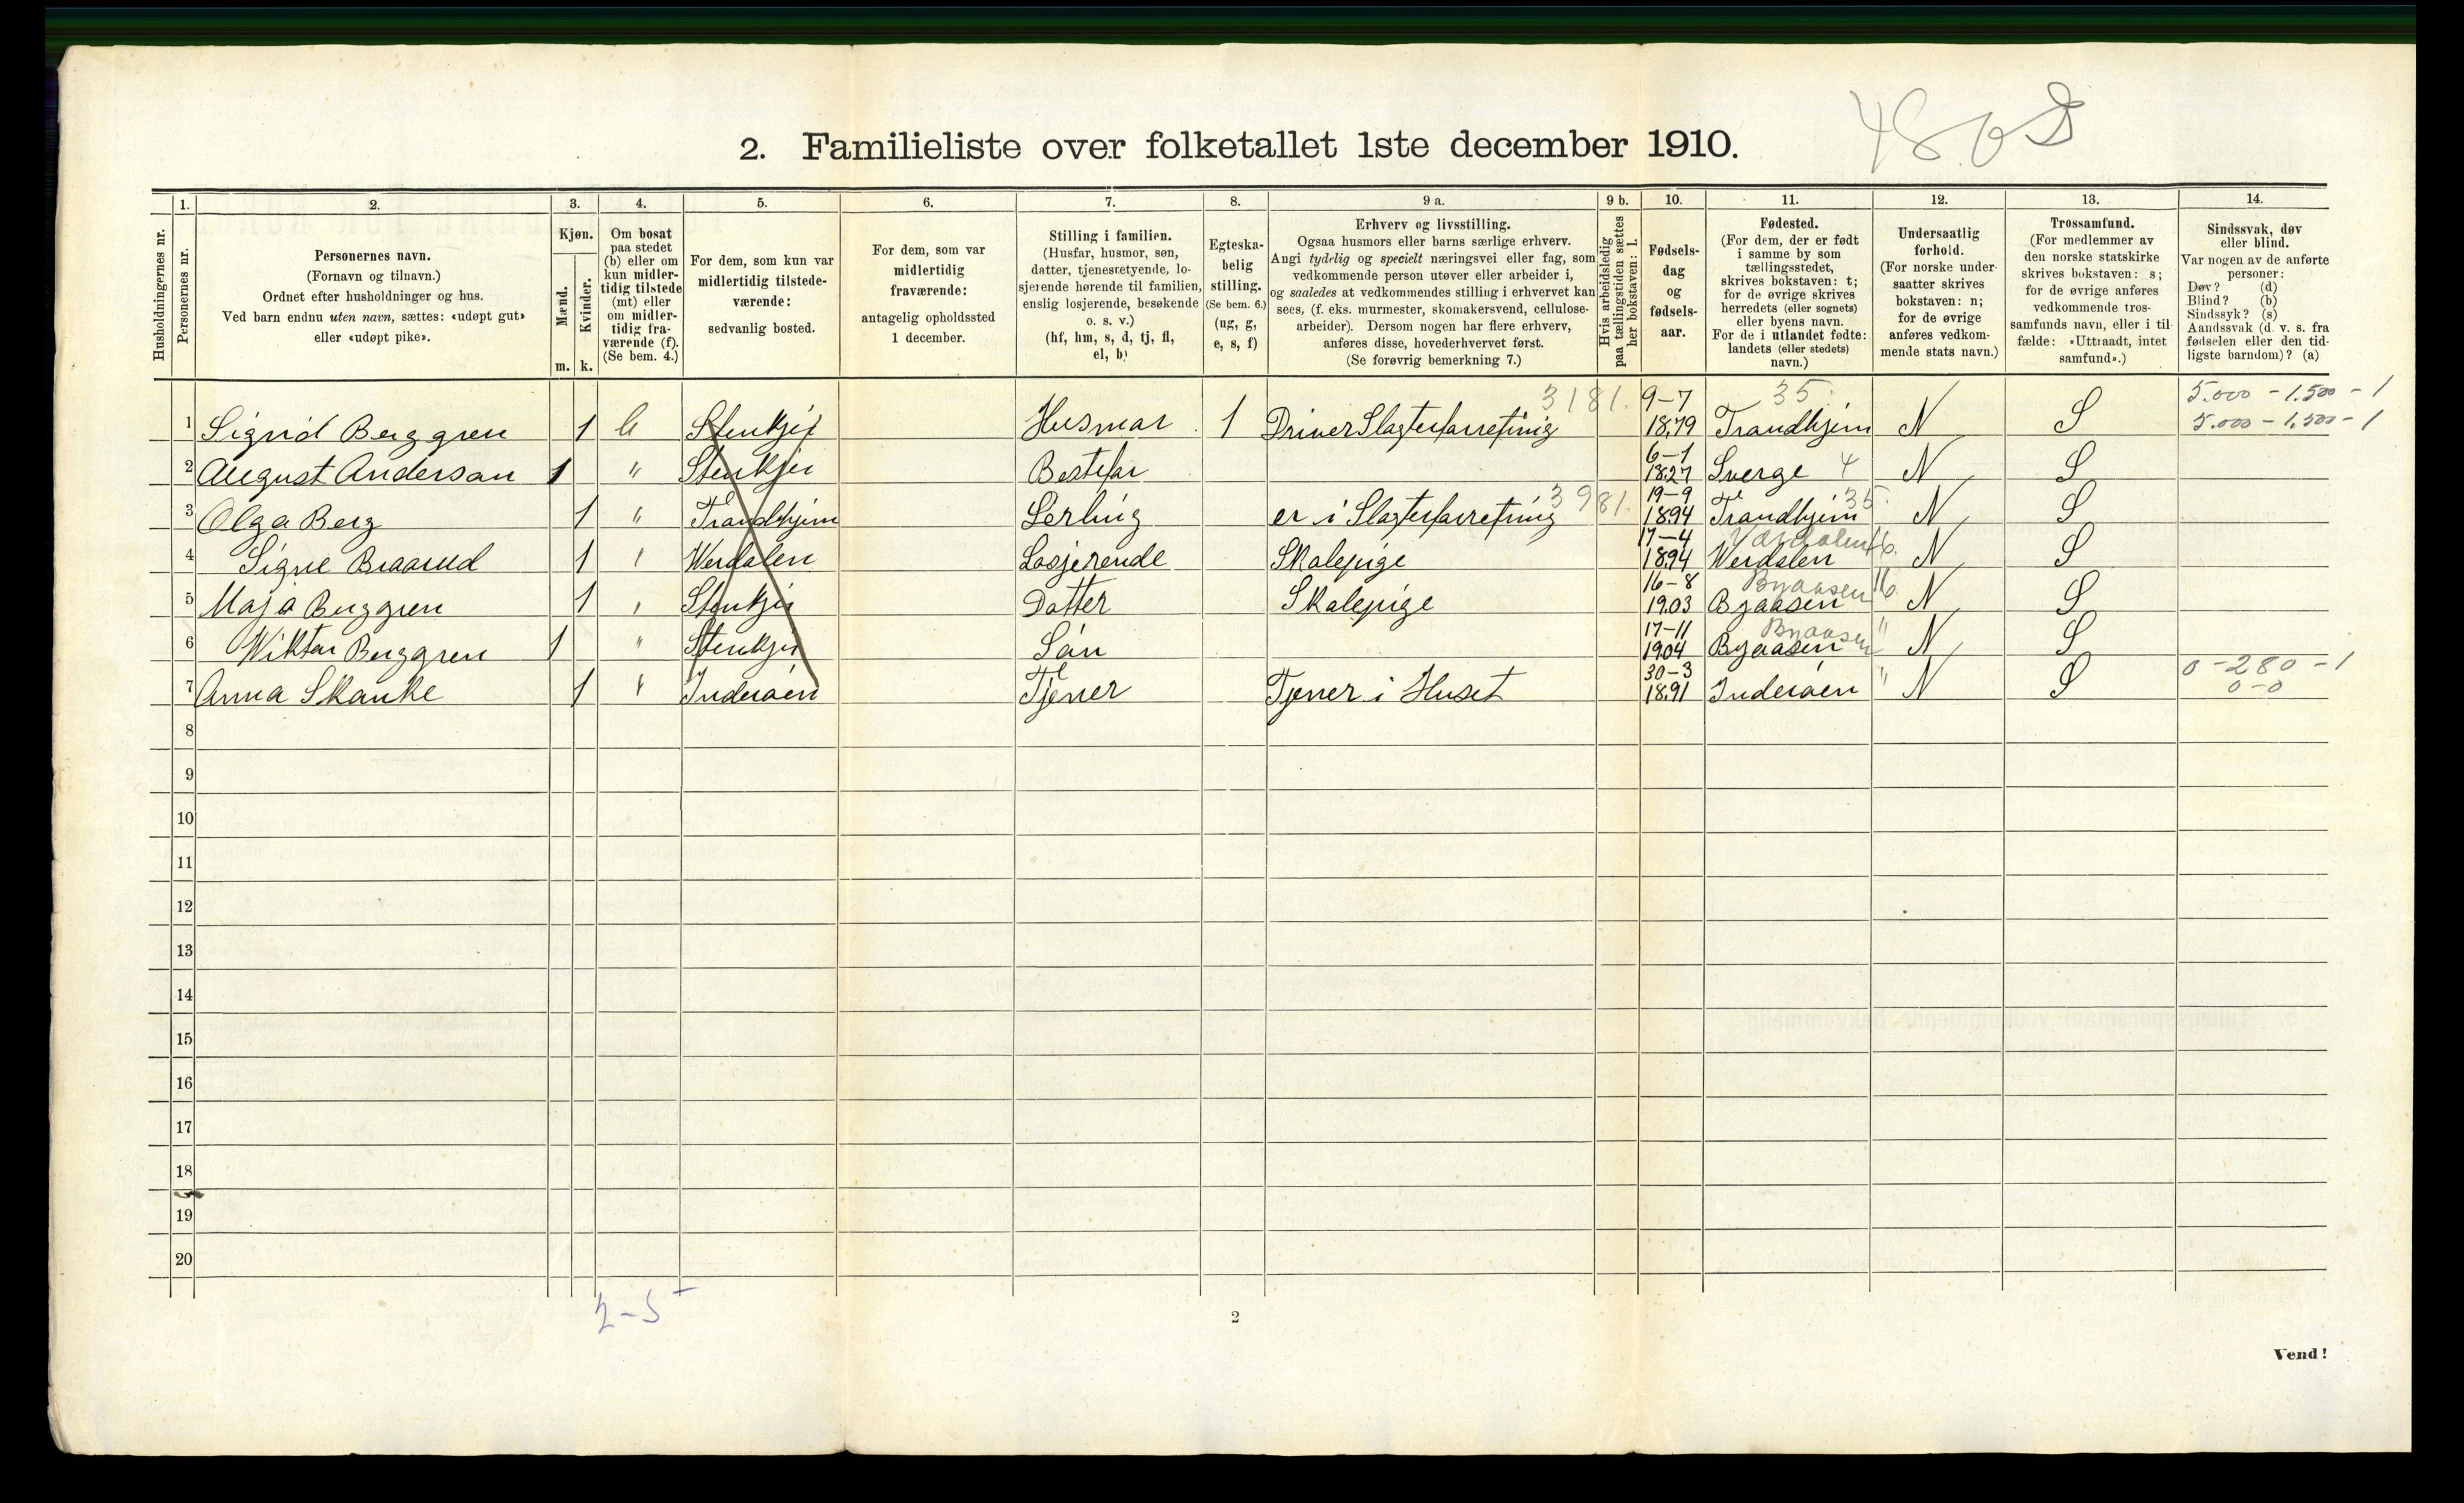 48 o D
2. Familieliste over folketallet 1ste december 1910.
Husholdningernes nr.
1.
Personernes nr.
2.
Personernes navn.
(Fornavn og tilnavn.)
Ordnet efter husholdninger og hus.
Ved barn endnu uten navn, sættes: «udøpt gut»
eller «udøpt pike».
3.
Kjøn.
Mænd.
Kvinder.
m. k.
4.
Om bosat
paa stedet
(b) eller om
kun midler-
tidig tilstede
(mt) eller
om midler-
tidig fra-
værende (f).
(Se bem. 4.)
5.
For dem, som kun var
midlertidig tilstede-
værende:
sedvanlig bosted.
6.
For dem, som var
midlertidig
fraværende:
antagelig opholdssted
1 december.
7.
Stilling i familien.
(Husfar, husmor, søn,
datter, tjenestetyende, lo-
sjerende hørende til familien,
enslig losjerende, besøkende
o. s. v.)
(hf, hm, s, d, tj, fl,
el, b)
8.
Egteska-
belig
stilling.
(Se bem. 6.)
(ug, g,
e, s, f)
9 a.
Erhverv og livsstilling.
Ogsaa husmors eller barns særlige erhverv.
Angi tydelig og specielt næringsvei eller fag, som
vedkommende person utøver eller arbeider i,
og saaledes at vedkommendes stilling i erhvervet kan
sees, (f. eks. murmester, skomakersvend, cellulose-
arbeider). Dersom nogen har flere erhverv,
anføres disse, hovederhvervet først.
(Se forøvrig bemerkning 7.)
9 b.
Hvis arbeidsledig
paa tællingstiden sættes
her bokstaven: l.
10.
Fødsels-
dag
og
fødsels-
aar.
11.
Fødested.
(For dem, der er født
i samme by som
tællingsstedet,
skrives bokstaven: t;
for de øvrige skrives
herredets (eller sognets)
eller byens navn.
For de i utlandet fødte:
landets (eller stedets)
navn.)
12.
Undersaatlig
forhold.
(For norske under-
saatter skrives
bokstaven: n;
for de øvrige
anføres vedkom-
mende stats navn.)
13.
Trossamfund.
(For medlemmer av
den norske statskirke
skrives bokstaven: s;
for de øvrige anføres
vedkommende tros-
samfunds navn, eller i til-
fælde: «Uttraadt, intet
samfund».)
14.
Sindssvak, døv
eller blind.
Var nogen av de anførte
personer:
Døv? (d)
Blind? (b)
Sindssyk? (s)
Aandssvak (d. v. s. fra
fødselen eller den tid-
ligste barndom)? (a)
3181. 9-7 35. 5.000 - 1.500 - 1
1 Sigrid Berggren 1 b Stenkjer Husmor 1 Driver Slagterforretning 1879 Trondhjem N S 5.000 - 1,500 - 1
6-1
2 August Anderson 1 " Stenkjer Bestefar 1827 Sverge 4 N S
3981. 19-9 35.
3 Olga Berg 1 " Trondhjem Lerling er i Slagterforretning 1894 Trondhjem N S
17-4 Værdalen 16.
4 Signe Braarud 1 " Werdalen Losjerende Skolepige 1894 Werdalen N S
16-8 Byaasen 16.
5 Maja Berggren 1 " Stenkjer Dotter Skolepige 1903 Byaasen N S
17-11 Byaasen "
6 Wiktor Berggren 1 " Stenkjer Sön 1904 Byaasen N S
30-3 " 0 - 280 - 1
7 Anna Skanke 1 " Inderöen Tjener Tjener i Huset 1891 Inderöen N S 0-0
8
9
10
11
12
13
14
15
16
17
18
19
20
2-5
2
Vend!